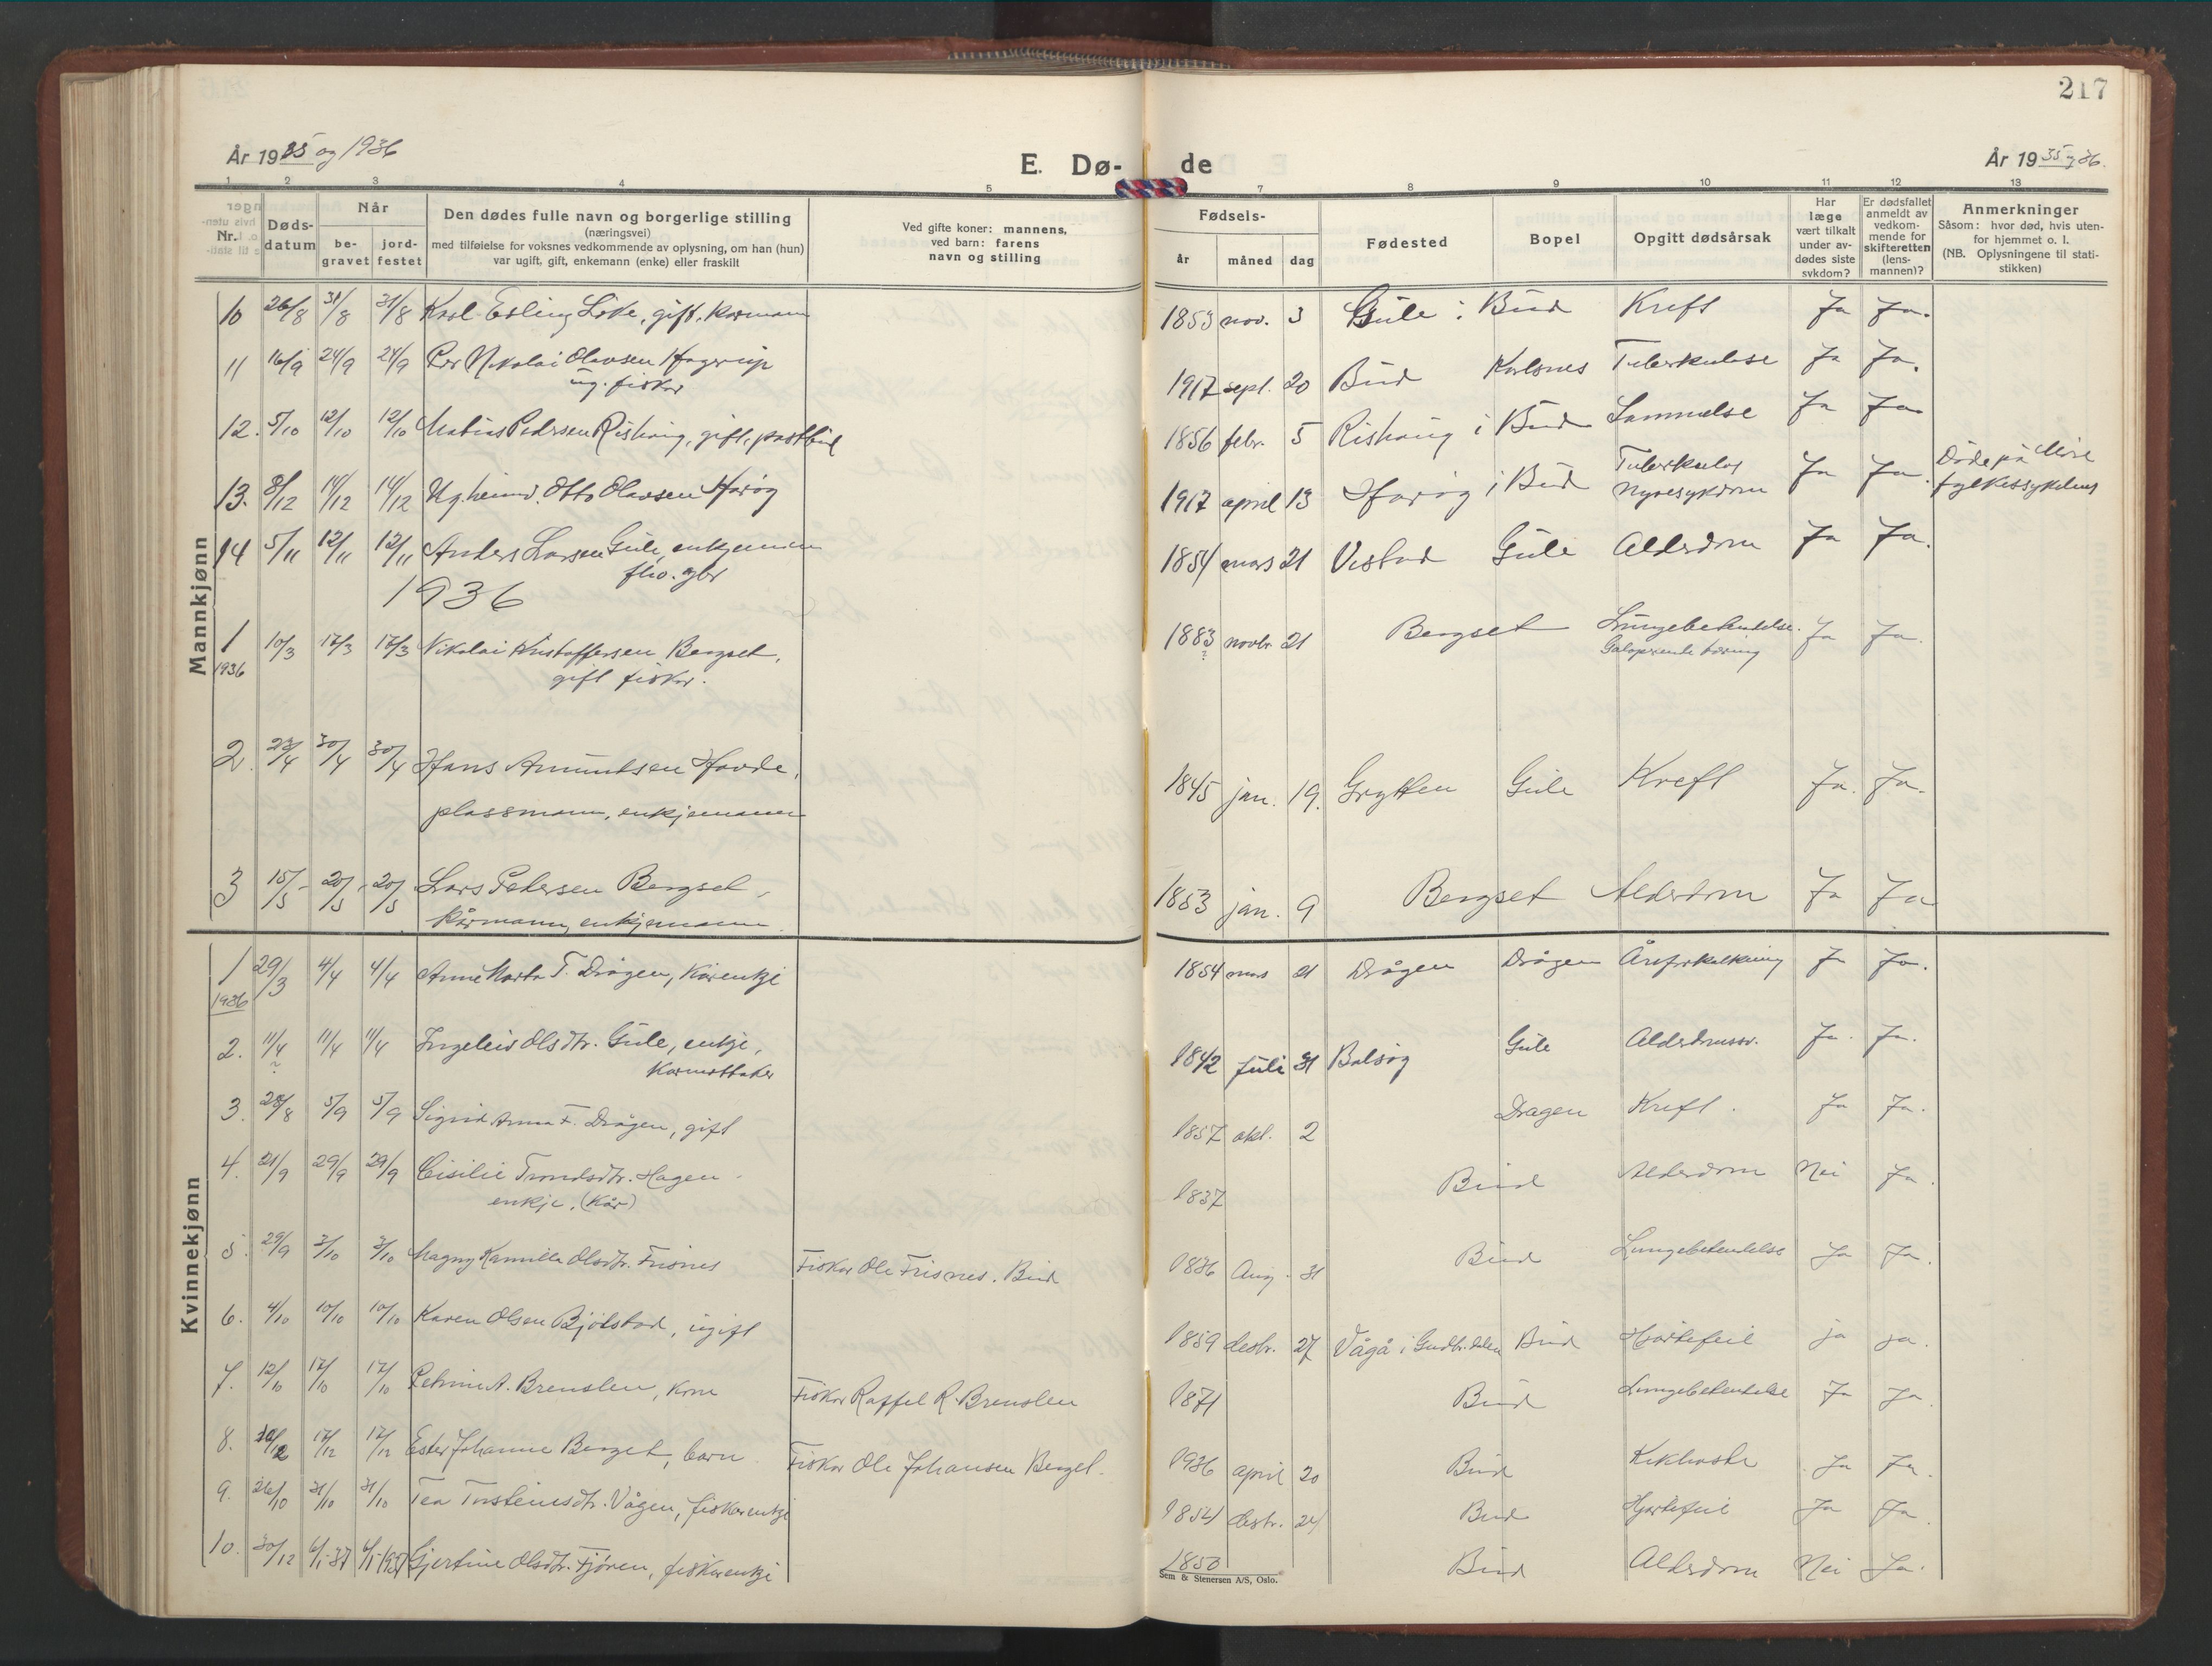 217
År 1935 og 1936
E. Dø-
de
År 1935 og 36.
1 2 3 4 5 7 8 9 10 11 12 13
Nr.
Døds-
datum
Når
be-
gravet
jord-
festet
Den dødes fulle navn og borgerlige stilling
(næringsvei)
med tilføielse for voksnes vedkommende av oplysning, om han (hun)
var ugift, gift, enkemann (enke) eller fraskilt
Ved gifte koner: mannens,
ved barn: farens
navn og stilling
Fødsels-
år
måned
dag
Fødested
Bopel
Opgitt dødsårsak
Har
læge
vært tilkalt
under av-
dødes siste
sykdom?
Er dødsfallet
anmeldt av
vedkom-
mende for
skifteretten
(lens-
mannen)?
Anmerkninger
Såsom: hvor død, hvis uten-
for hjemmet o. l.
(NB. Oplysningene til stati-
stikken)
Mannkjønn
10 26/8 31/8 31/8 Karl Esling , gift, kårmann 1853 nov. 3 Gule i Bud Kreft Ja Ja.
11 16/9 24/9 24/9 Per Nikolai Olavsen Hagerup 1917 sept. 20 Bud Karlsnes Tuberkulose Ja Ja.
ug. fisker
12. 5/10 12/10 12/10 Matias Pedersen Rishaug, gift, postbud 1856 febr. 5 Rishaug i Bud Lammelse Ja Ja
13. 8/12 14/12 14/12 Ug. Otto Olavsen Harøy 1917 april 13 Harøy i Bud Tuberkuløs Ja Ja. Døde på Møre
nyresykdom fylkessykehus
14 5/11 12/11 12/11 Anders Larsen Gule, enkjemann 1854 mars 21 Vestad Gule Alderdom Ja Ja.
fhv. gbr
1936
1 10/3 17/3 17/3 Nikolai Kristoffersen Bergset, 1883 novbr 21 Bergset Lungebetendelse. Ja Ja.
1936 gift fisker. ? Galoperende tæring
2. 23/4 30/4 30/4 Hans Amundsen Hovde, 1845 jan. 19. Grytten Gule Kreft Ja. Ja.
plassmann, enkjemann
3 15/5 20/5 20/5 Lars Petersen Bergset, 1853 jan. 9 Bergset Alderdom Ja Ja
kårmann, enkjemann
Kvinnekjønn
1 29/3 4/4 4/4 Anne Marta T. Drågen, kårenkje 1854 mars 21 Drågen Drågen Åreforkalkning Ja Ja.
1936
2. 11/4 11/4 11/4 Ingeleiv Olsdtr. Gule, enkje, 1842 juli 31 Bolsøy Gule Ja. Ja.
? kårmottaker
3. 28/8 5/9 5/9 Sigrid Anna F. Drågen, gift 1857 okt. 2 Dragen Kreft. Ja Ja.
4. 21/9 29/9 29/9 Cisilie Trondsdtr. Hagen 1837 Bud Alderdom Nei Ja.
enkje. (Kår)
5. 29/9 3/10 3/10 Magny Kamilla Olsdtr. Frisnes Fisker Ole Frisnes. Bud 1936 Aug. 31 Bud Lungebetendelse Ja Ja.
6. 4/10 10/10 10/10 Karen Olsen Bjølstad, ugift 1859 desbr. 27 Vågå i Gudbr.dalen Bud Hjertefeil ja ja.
7. 12/10 17/10 17/10 Petrine A. Brenslen, kone Fisker Raffel R. Brenslen 1871 Bud Lungebetendelse Ja Ja.
8. 10/12 17/12 17/12 Ester Johanne Berget, barn Fisker Ole Johansen Berget. 1936 april 20 Bud Kikhoste Ja Ja.
9. 26/10 31/10 31/10 Tea Torsteinsdtr. Vågen, fiskerenkje 1854 desbr. 24 Bud Hjertefeil Ja Ja
10. 30/12 6/1-37 6/1-1937 Gjertine Olsdtr. Fjøren, fiskerenkje 1850 Bud Alderdom Nei Ja.
Sem & Stenersen A/S, Oslo.